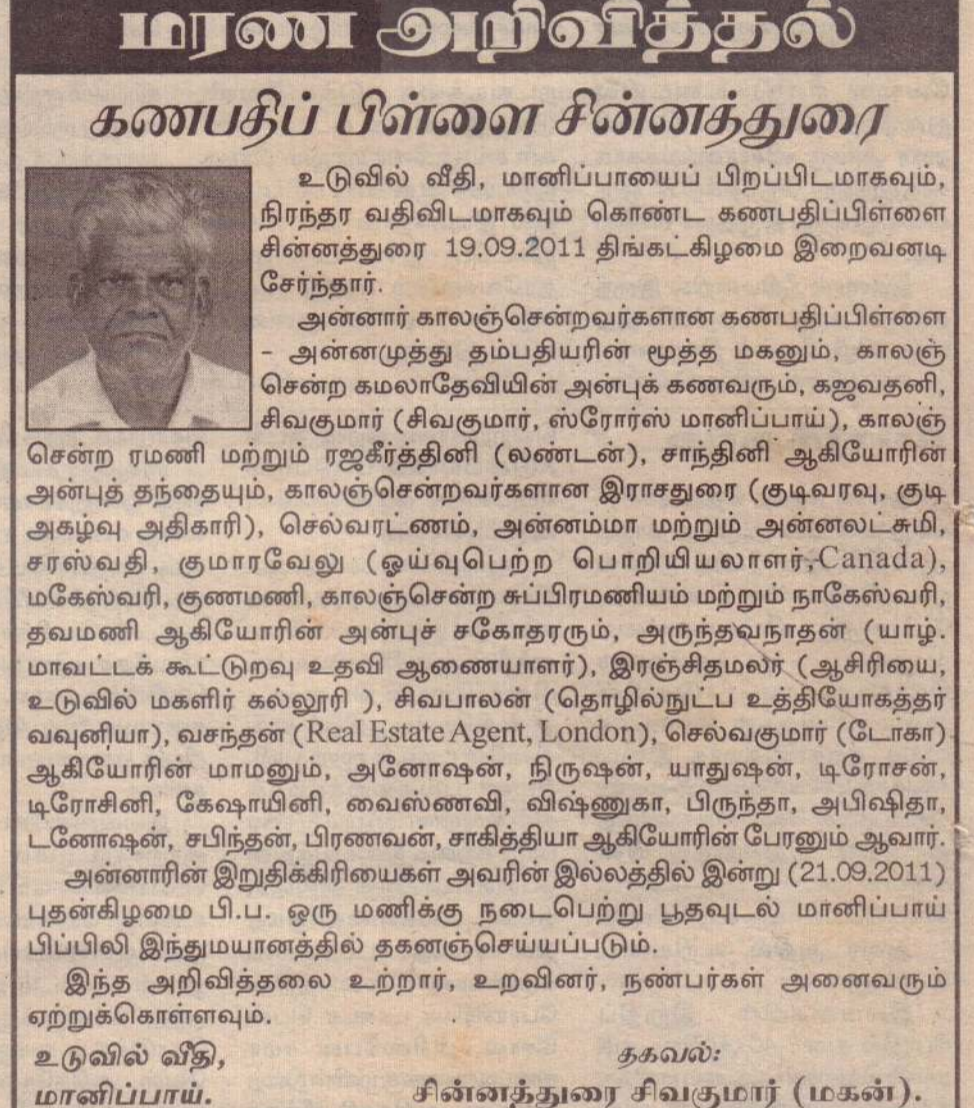 மரண அறிவித்தல்
கணபதிப் பிள்ளை சின்னத்துரை
உடுவில் வீதி, மானிப்பாயைப் பிறப்பிடமாகவும்,
நிரந்தர வதிவிடமாகவும் கொண்ட கணபதிப்பிள்ளை
சின்னத்துரை 19.09.2011 திங்கட்கிழமை இறைவனடி
சேர்ந்தார்.
அன்னார் காலஞ்சென்றவர்களான கணபதிப்பிள்ளை
- அன்னமுத்து தம்பதியரின் மூத்த மகனும், காலஞ்
சென்ற கமலாதேவியின் அன்புக் கணவரும், கஜவதனி,
சிவகுமார் (சிவகுமார், ஸ்ரோர்ஸ் மானிப்பாய்), காலஞ்
சென்ற ரமணி மற்றும் ரஜகீர்த்தினி (லண்டன்), சாந்தினி ஆகியோரின்
அன்புத் தந்தையும், காலஞ்சென்றவர்களான இராசதுரை (குடிவரவு, குடி
அகழ்வு அதிகாரி), செல்வரட்ணம், அன்னம்மா மற்றும் அன்னலட்சுமி,
சரஸ்வதி, குமாரவேலு (ஓய்வுபெற்ற பொறியியலாளர், Canada),
மகேஸ்வரி, குணமணி, காலஞ்சென்ற சுப்பிரமணியம் மற்றும் நாகேஸ்வரி,
தவமணி ஆகியோரின் அன்புச் சகோதரரும், அருந்தவநாதன் (யாழ்.
மாவட்டக் கூட்டுறவு உதவி ஆணையாளர்), இரஞ்சிதமலர் (ஆசிரியை,
உடுவில் மகளிர் கல்லூரி ), சிவபாலன் (தொழில்நுட்ப உத்தியோகத்தர்
வவுனியா), வசந்தன் (Real Estate Agent, London), செல்வகுமார் (டோகா)
ஆகியோரின் மாமனும், அனோஷன், நிருஷன், யாதுஷன், டிரோசன்,
டிரோசினி, கேஷாயினி, வைஸ்ணவி, விஷ்ணுகா, பிருந்தா, அபிஷிதா,
டனோஷன், சபிந்தன், பிரணவன், சாகித்தியா ஆகியோரின் பேரனும் ஆவார்.
அன்னாரின் இறுதிக்கிரியைகள் அவரின் இல்லத்தில் இன்று (21.09.2011)
புதன்கிழமை பி.ப. ஒரு மணிக்கு நடைபெற்று பூதவுடல் மானிப்பாய்
பிப்பிலி இந்துமயானத்தில் தகனஞ்செய்யப்படும்.
இந்த அறிவித்தலை உற்றார், உறவினர், நண்பர்கள் அனைவரும்
ஏற்றுக்கொள்ளவும்.
உடுவில் வீதி,
மானிப்பாய்.
தகவல்:
சின்னத்துரை சிவகுமார் (மகன்).